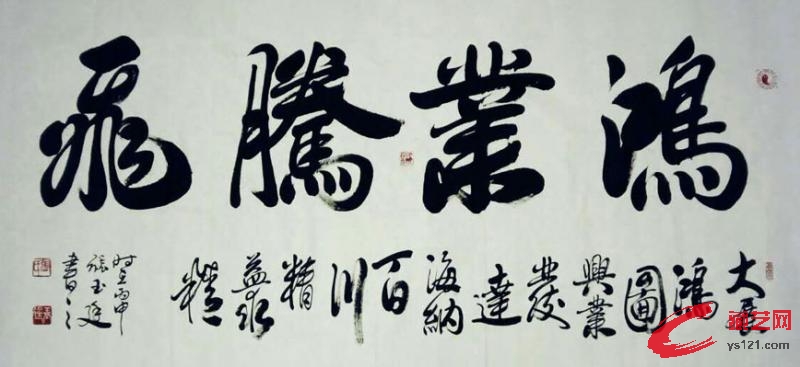 鴻業騰飛
大展鴻圖興業發達海納百川精益求精
时在丙申
張玉
書
艺网
ys121.com